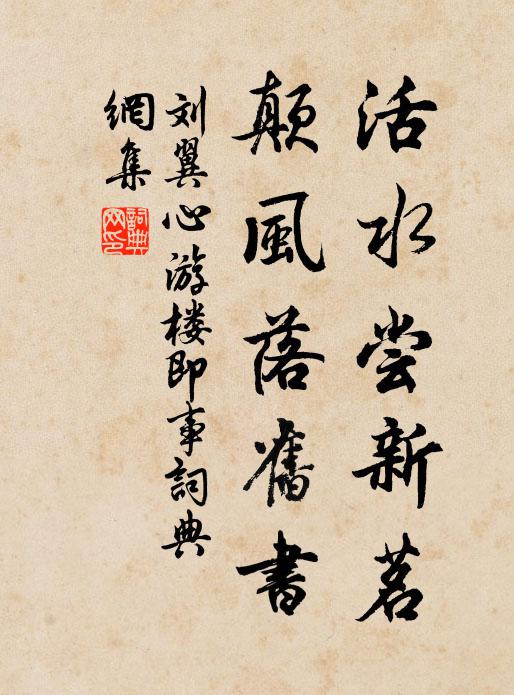 活水尝新茗
颠風落舊書
刘翼心游楼即事詞典
網集
詞典
网印